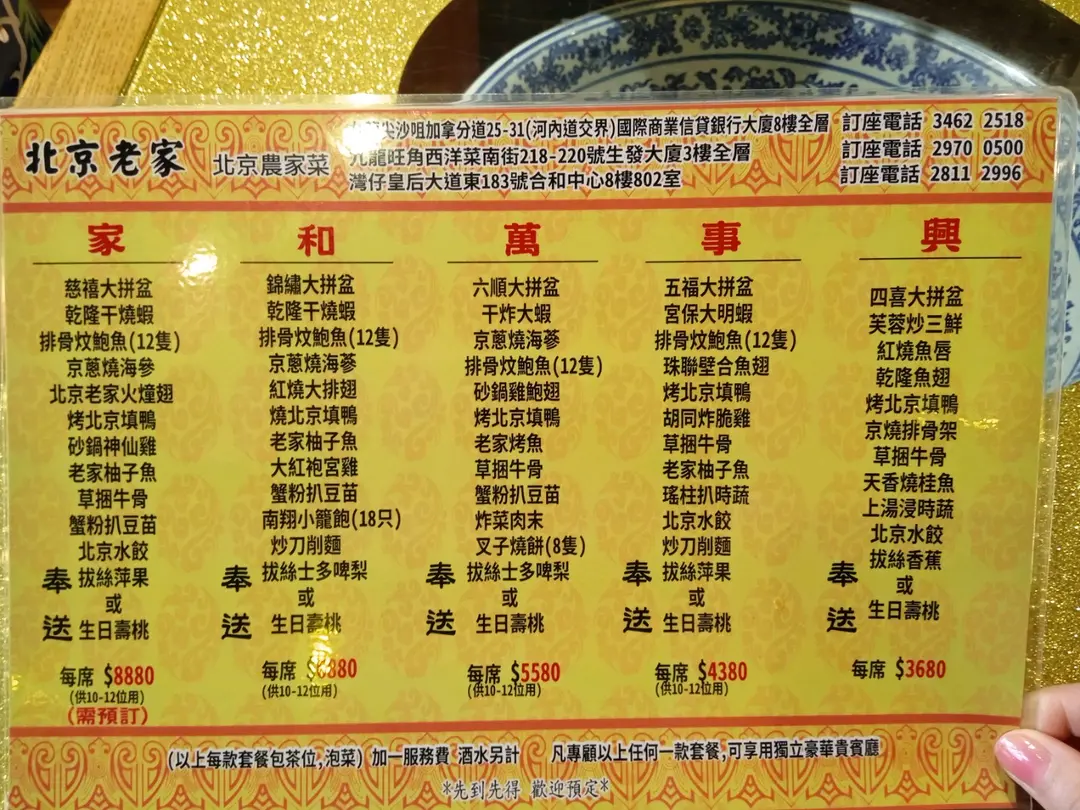 北京老家 北京農家菜
尖沙咀加拿分道25-31(河內道交界)國際商業信貸銀行大廈8樓全層 訂座電話 3462 2518
九龍旺角西洋菜南街218-220號生發大廈3樓全層 訂座電話 2970 0500
灣仔皇后大道東183號合和中心8樓802室 訂座電話 2811 2996
家
慈禧大拼盆
乾隆干燒蝦
排骨炆鮑魚(12隻)
京蔥燒海參
北京老家火燑翅
烤北京填鴨
砂鍋神仙雞
老家柚子魚
草捆牛骨
蟹粉扒豆苗
北京水餃
奉送
拔絲萍果
或
生日壽桃
每席 $8880
(供10-12位用)
(需預訂)
和
錦繡大拼盆
乾隆干燒蝦
排骨炆鮑魚(12隻)
京蔥燒海蔘
紅燒大排翅
燒北京填鴨
老家柚子魚
大紅袍宮雞
蟹粉扒豆苗
南翔小籠飽(18只)
炒刀削麵
奉送
拔絲士多啤梨
或
生日壽桃
每席 $880
(供10-12位用)
萬
六順大拼盆
干炸大蝦
京蔥燒海蔘
排骨炆鮑魚(12隻)
砂鍋雞鮑翅
烤北京填鴨
老家烤魚
草捆牛骨
蟹粉扒豆苗
炸菜肉末
叉子燒餅(8隻)
奉送
拔絲士多啤梨
或
生日壽桃
每席 $5580
(供10-12位用)
事
五福大拼盆
宮保大明蝦
排骨炆鮑魚(12隻)
珠聯壁合魚翅
烤北京填鴨
胡同炸脆雞
草捆牛骨
老家柚子魚
瑤柱扒時蔬
北京水餃
炒刀削麵
奉送
拔絲萍果
或
生日壽桃
每席 $4380
(供10-12位用)
興
四喜大拼盆
芙蓉炒三鮮
紅燒魚唇
乾隆魚翅
烤北京填鴨
京燒排骨架
草捆牛骨
天香燒桂魚
上湯浸時蔬
北京水餃
奉送
拔絲香蕉
或
生日壽桃
每席 $3680
(以上每款套餐包茶位,泡菜) 加一服務費 酒水另計 凡專顧以上任何一款套餐,可享用獨立豪華貴賓廳
*先到先得 歡迎預定*